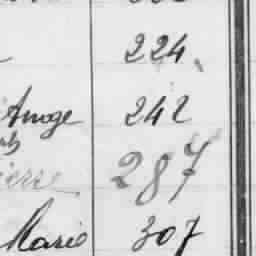 224
Ange 242
ierre 287
Marie 307